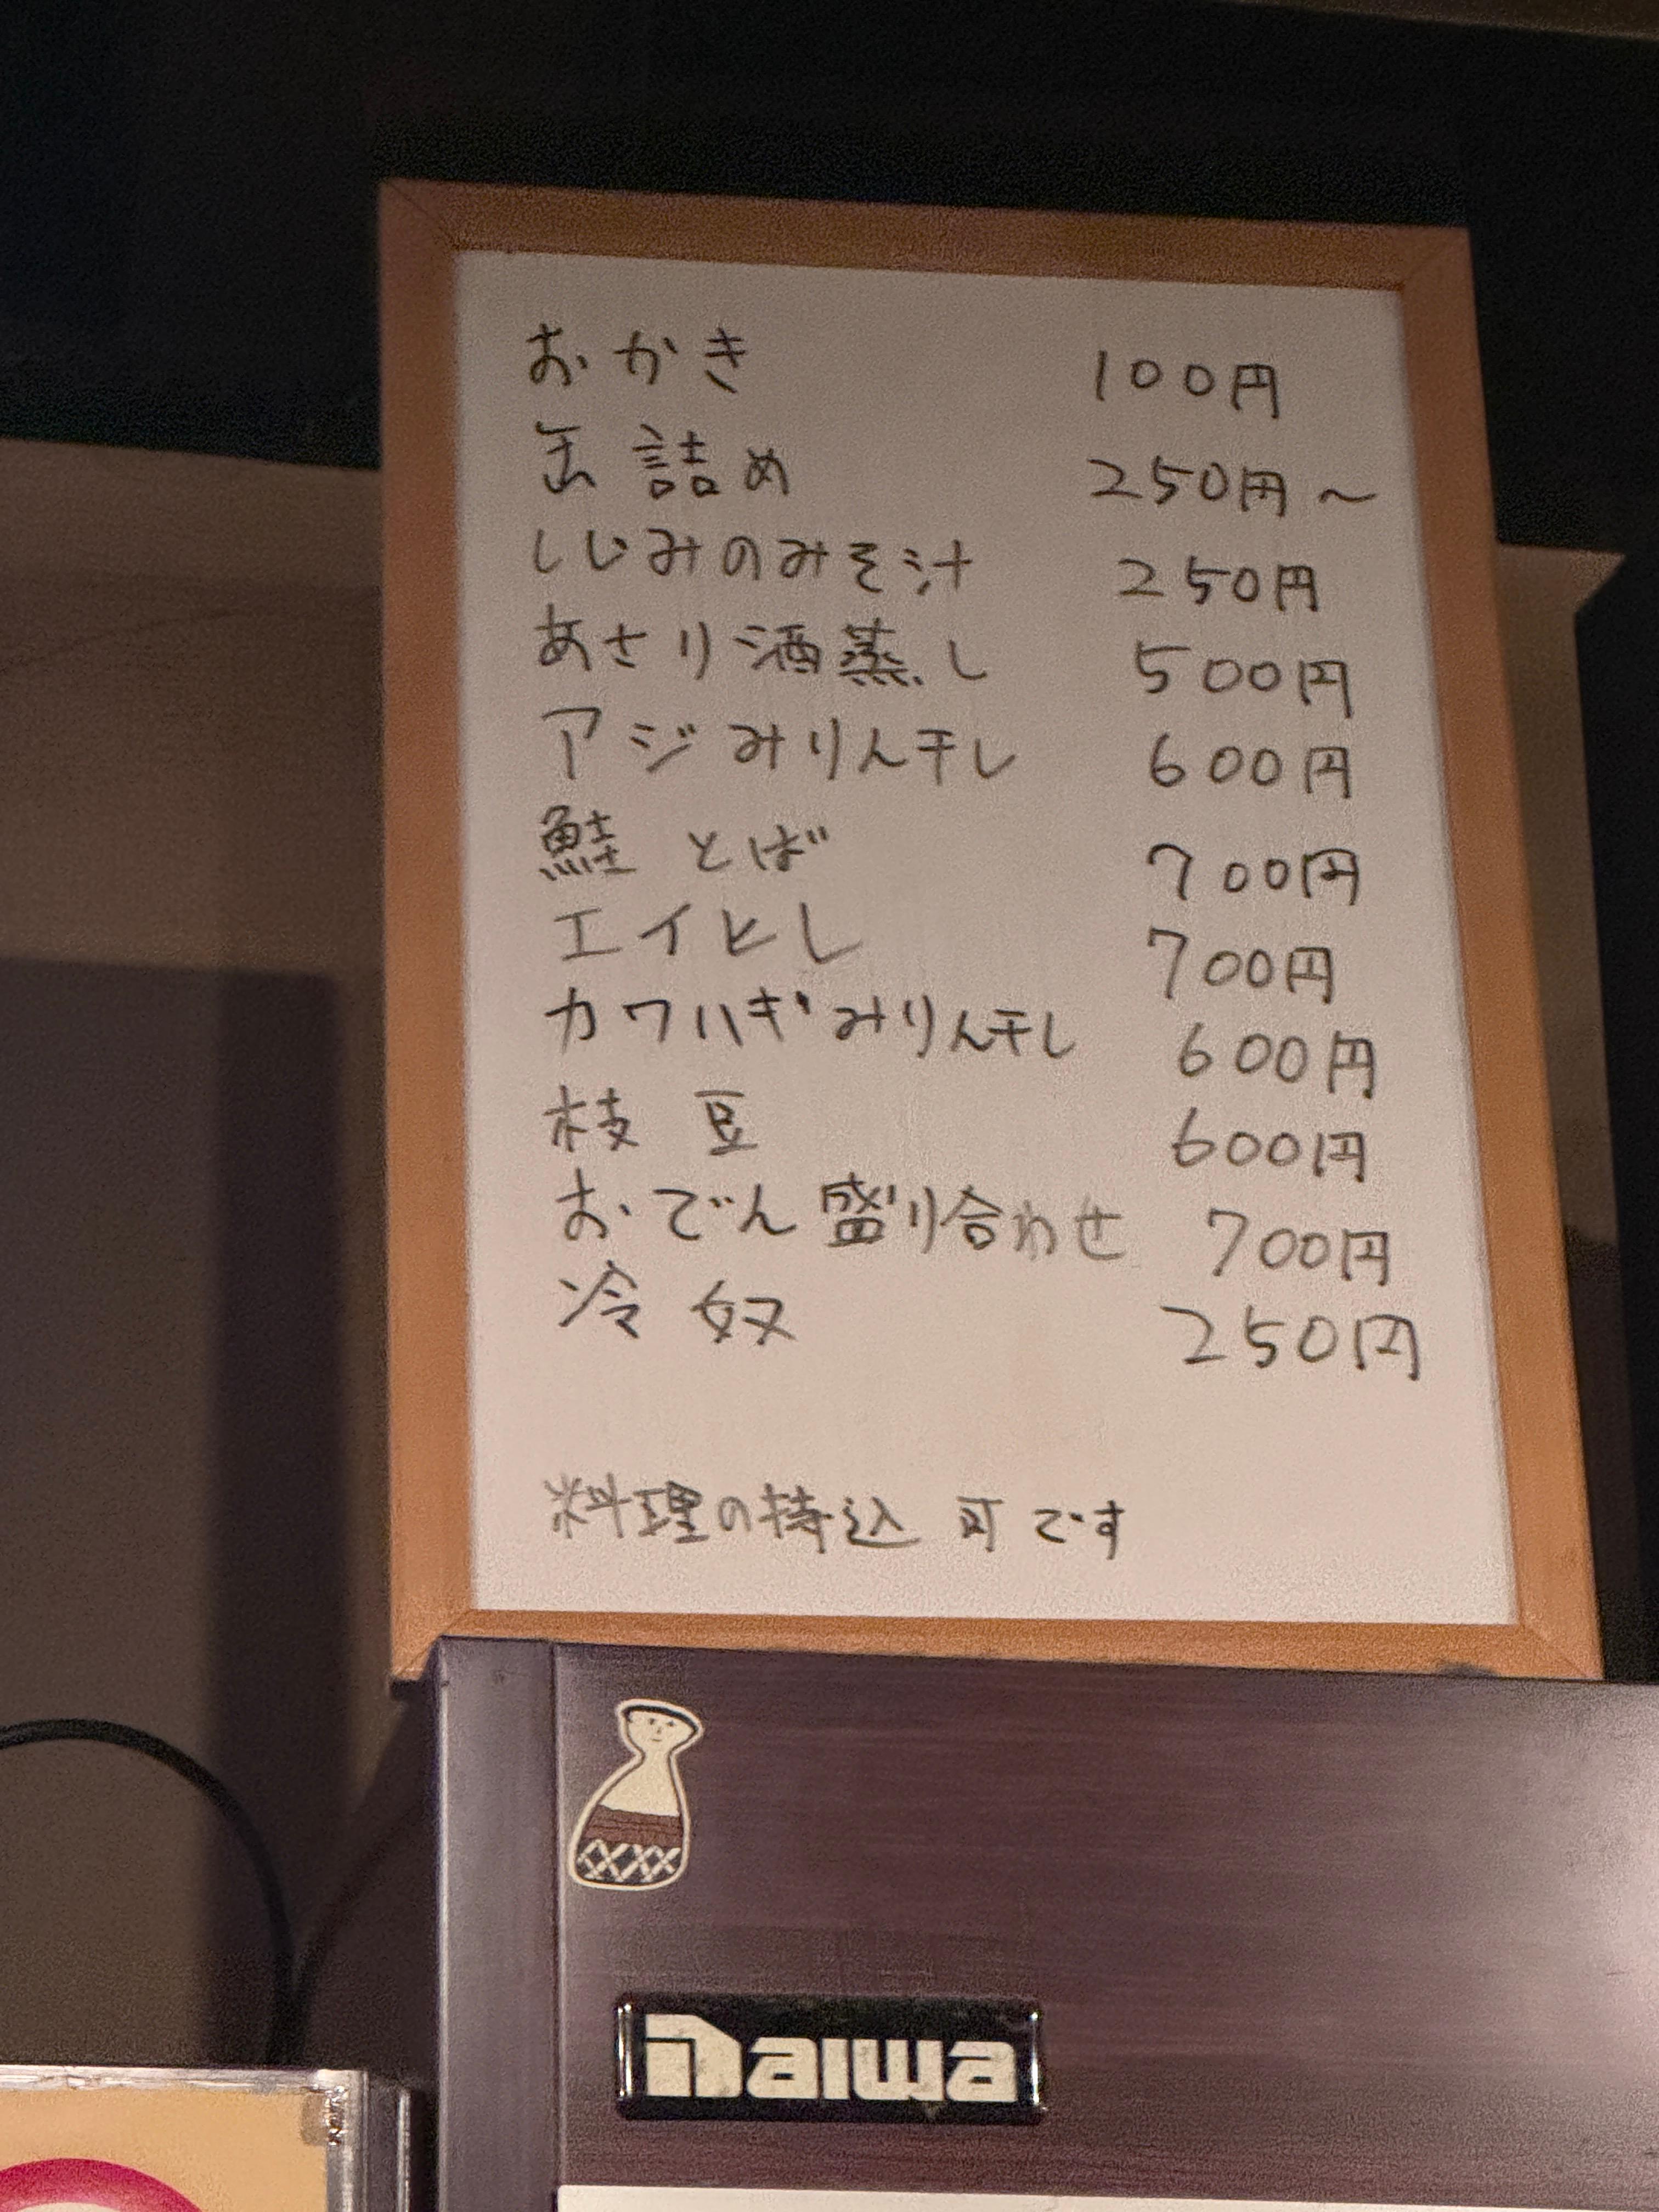 おかき 100円
缶詰め 250円～
しじみのみそ汁 250円
あさり酒蒸し 500円
アジみりん干し 600円
鮭とば 700円
エイヒレ 700円
カワハギみりん干し 600円
枝豆 600円
おでん盛り合わせ 700円
冷奴 250円
料理の持込 可です
Daiwa